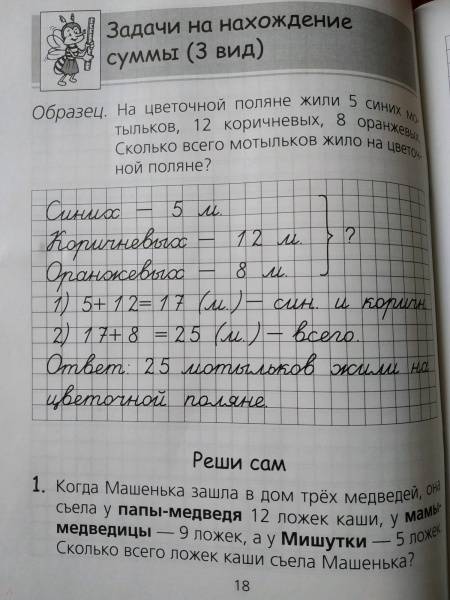 Задачи на нахождение
суммы (3 вид)
Образец. На цветочной поляне жили 5 синих мо-
тыльков, 12 коричневых, 8 оранжевых.
Сколько всего мотыльков жило на цветоч-
ной поляне?
Синих — 5 м.
Коричневых — 12 м. } ?
Оранжевых — 8 м.
1) 5+12=17 (м.) — син. и коричн.
2) 17+8 = 25 (м.) — всего.
Ответ: 25 мотыльков жили на
цветочной поляне.
Реши сам
1. Когда Машенька зашла в дом трёх медведей, она
съела у папы-медведя 12 ложек каши, у мамы-
медведицы — 9 ложек, а у Мишутки — 5 ложек.
Сколько всего ложек каши съела Машенька?
18